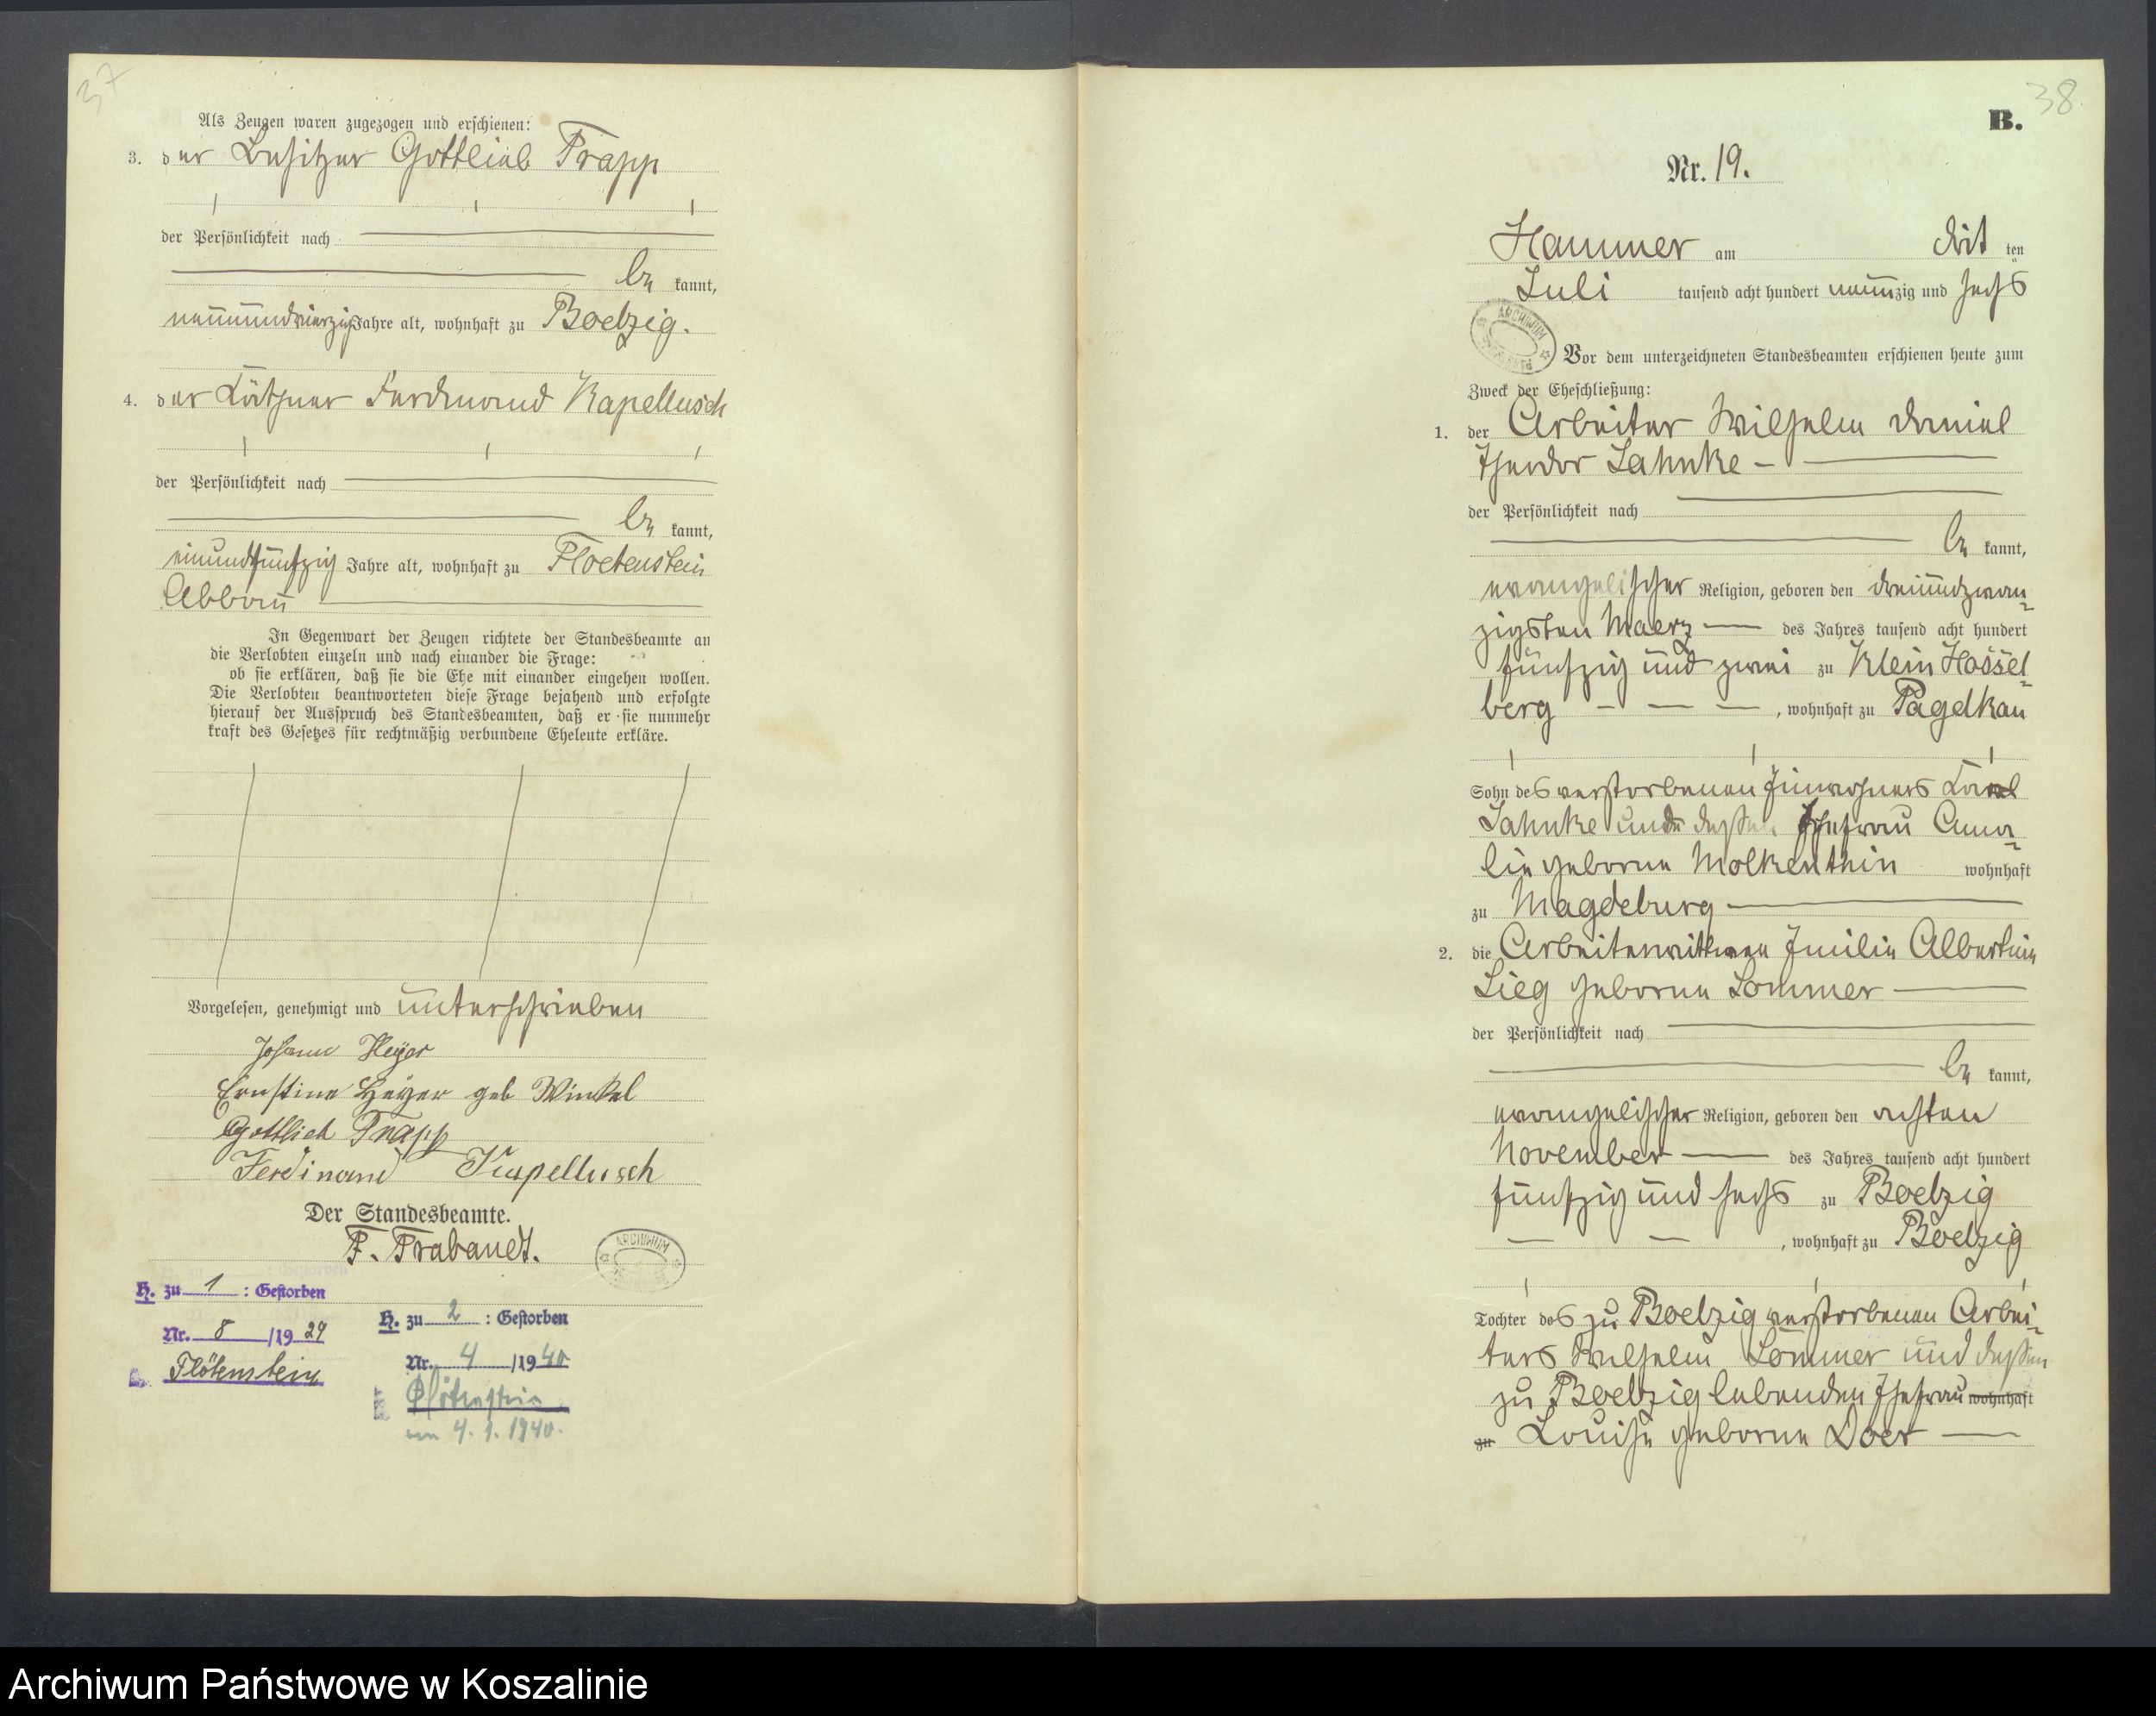 37
Als Zeugen waren zugezogen und erschienen:
3. der Besitzer Gottlieb Trapp
der Persönlichkeit nach
be kannt,
neunundvierzig Jahre alt, wohnhaft zu Boelzig.
4. der Käthner Ferdinand Kapellusch
der Persönlichkeit nach
be kannt,
einundfünfzig Jahre alt, wohnhaft zu Floetenstein
Abbau
In Gegenwart der Zeugen richtete der Standesbeamte an
die Verlobten einzeln und nach einander die Frage:
ob sie erklären, daß sie die Ehe mit einander eingehen wollen.
Die Verlobten beantworteten diese Frage bejahend und erfolgte
hierauf der Ausspruch des Standesbeamten, daß er sie nunmehr
kraft des Gesetzes für rechtmäßig verbundene Eheleute erkläre.
Vorgelesen, genehmigt und unterschrieben
Johann Heyer
Ernstine Heyer geb Winkel
Gottlieb Trapp
Ferdinand Kapellusch
Der Standesbeamte.
F. Trabandt.
ARCHIWUM
H. zu 1 : Gestorben
Nr. 8 /19 29
Flötenstein
H. zu 2 : Gestorben
Nr. 4 /19 40
Flötenstein
am 4. 1. 1940.
38
B.
Nr. 19.
Hammer am drit ten
Juli tausend acht hundert neunzig und sechs
ARCHIWUM
Vor dem unterzeichneten Standesbeamten erschienen heute zum
Zweck der Eheschließung:
1. der Arbeiter Wilhelm Daniel
Theodor Jahnke
der Persönlichkeit nach
be kannt,
evangelischer Religion, geboren den dreiundzwan-
zigsten Maerz des Jahres tausend acht hundert
fünfzig und zwei zu Klein Hossel-
berg , wohnhaft zu Pagelkau
Sohn des verstorbenen Einwohners Karl
Jahnke und dessen Ehefrau Ama-
lie geborne Molkenthin wohnhaft
zu Magdeburg
2. die Arbeiterwittwe Emilie Albertine
Lieg geborne Sommer
der Persönlichkeit nach
be kannt,
evangelischer Religion, geboren den achten
November des Jahres tausend acht hundert
fünfzig und sechs zu Boelzig
, wohnhaft zu Boelzig
Tochter des zu Boelzig verstorbenen Arbei-
ters Wilhelm Sommer und dessen
zu Boelzig lebenden Ehefrau wohnhaft
zu Louise geborne Doer
Archiwum Państwowe w Koszalinie